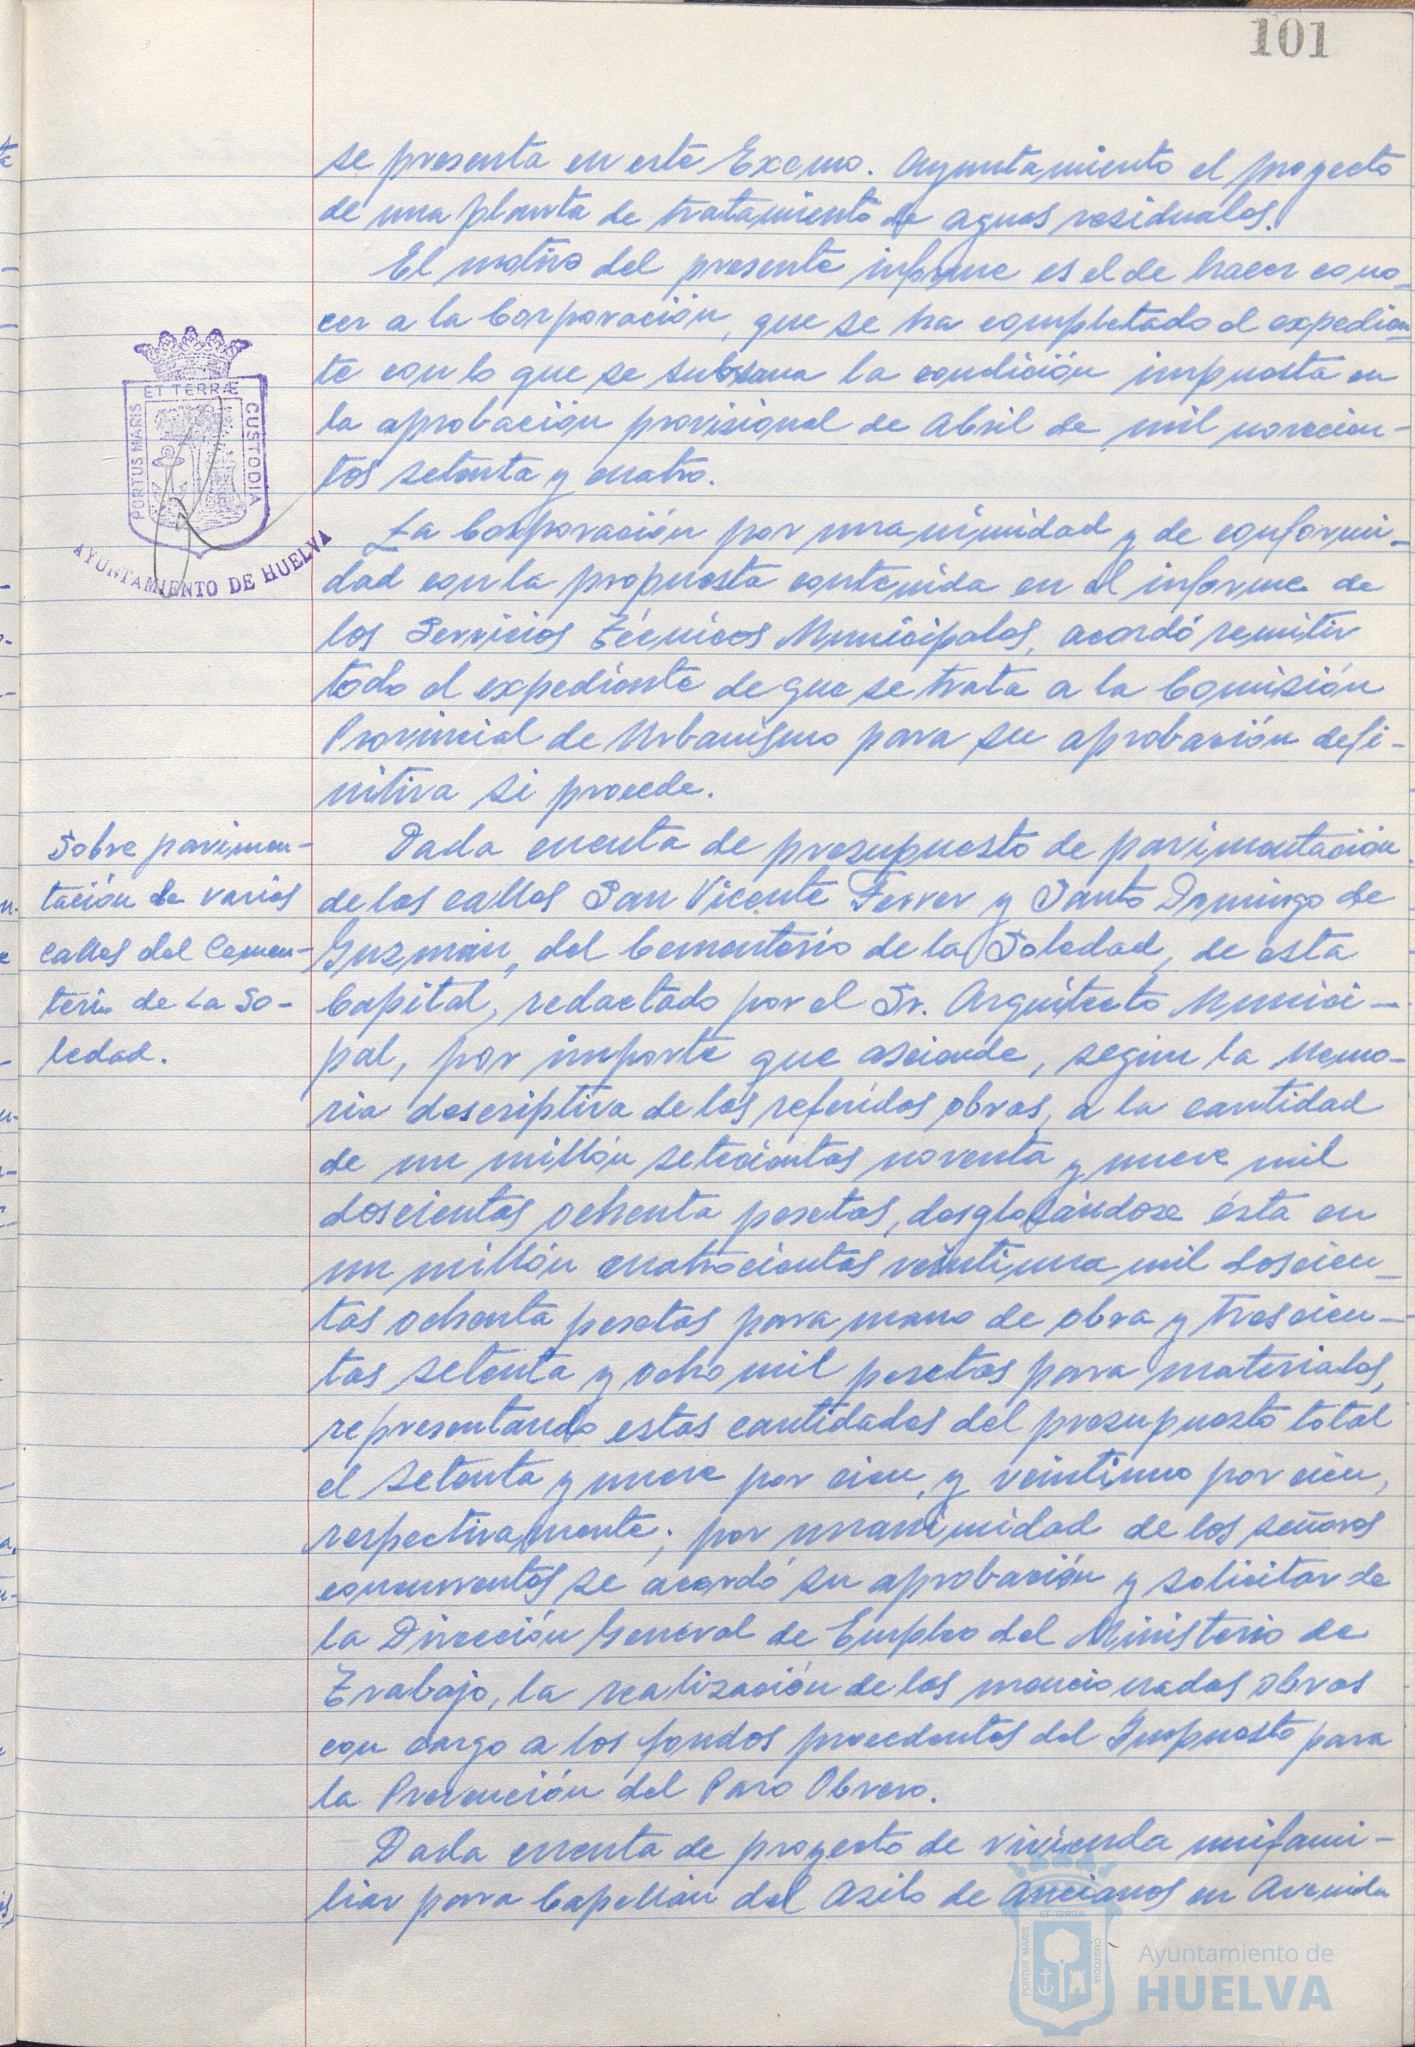 101
se presenta en este Excmo. Ayuntamiento el proyecto
de una planta de tratamiento de aguas residuales.
El motivo del presente informe es el de hacer cono-
cer a la Corporación, que se ha completado el expedien-
te con lo que se subsana la condición impuesta en
la aprobación provisional de Abril de mil novecien-
tos setenta y cuatro.
ET TERRÆ
PORTUS MARIS
CUSTODIA
AYUNTAMIENTO DE HUELVA
La Corporación por unanimidad y de conformi-
dad con la propuesta contenida en el informe de
los Servicios Técnicos Municipales, acordó remitir
todo el expediente de que se trata a la Comisión
Provincial de Urbanismo para su aprobación defi-
nitiva si procede.
Sobre pavimen-
tación de varias
calles del Cemen-
terio de La So-
ledad.
Dada cuenta de presupuesto de pavimentación
de las calles San Vicente Ferrer y Santo Domingo de
Guzmán, del Cementerio de la Soledad, de esta
Capital, redactado por el Sr. Arquitecto Munici-
pal, por importe que asciende, según la Memo-
ria descriptiva de las referidas obras, a la cantidad
de un millón setecientas noventa y nueve mil
doscientas ochenta pesetas, desglosándose ésta en
un millón cuatrocientas veintiuna mil doscien-
tas ochenta pesetas para mano de obra y trescien-
tas setenta y ocho mil pesetas para materiales,
representando estas cantidades del presupuesto total
el setenta y nueve por cien, y veintiuno por cien,
respectivamente; por unanimidad de los señores
concurrentes se acordó su aprobación y solicitar de
la Dirección General de Empleo del Ministerio de
Trabajo, la realización de las mencionadas obras
con cargo a los fondos procedentes del Impuesto para
la Prevención del Paro Obrero.
Dada cuenta de proyecto de vivienda unifami-
liar para Capellán del Asilo de Ancianos en Avenida
ET TERRÆ
PORTUS MARIS
CUSTODIA
Ayuntamiento de
HUELVA